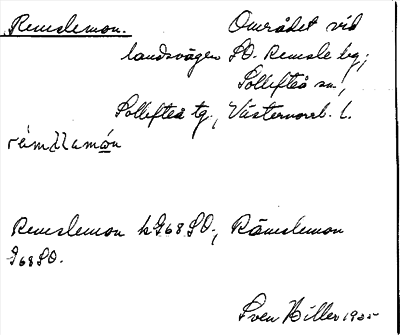 Remslemon. Området vid
landsvägen SO. Remsle by;
Sollefteå sn,
Sollefteå tg., Västernorrl. l.
Remslemon k G68SO., Rämslemon
G68SO.
Sven Hiller 1935